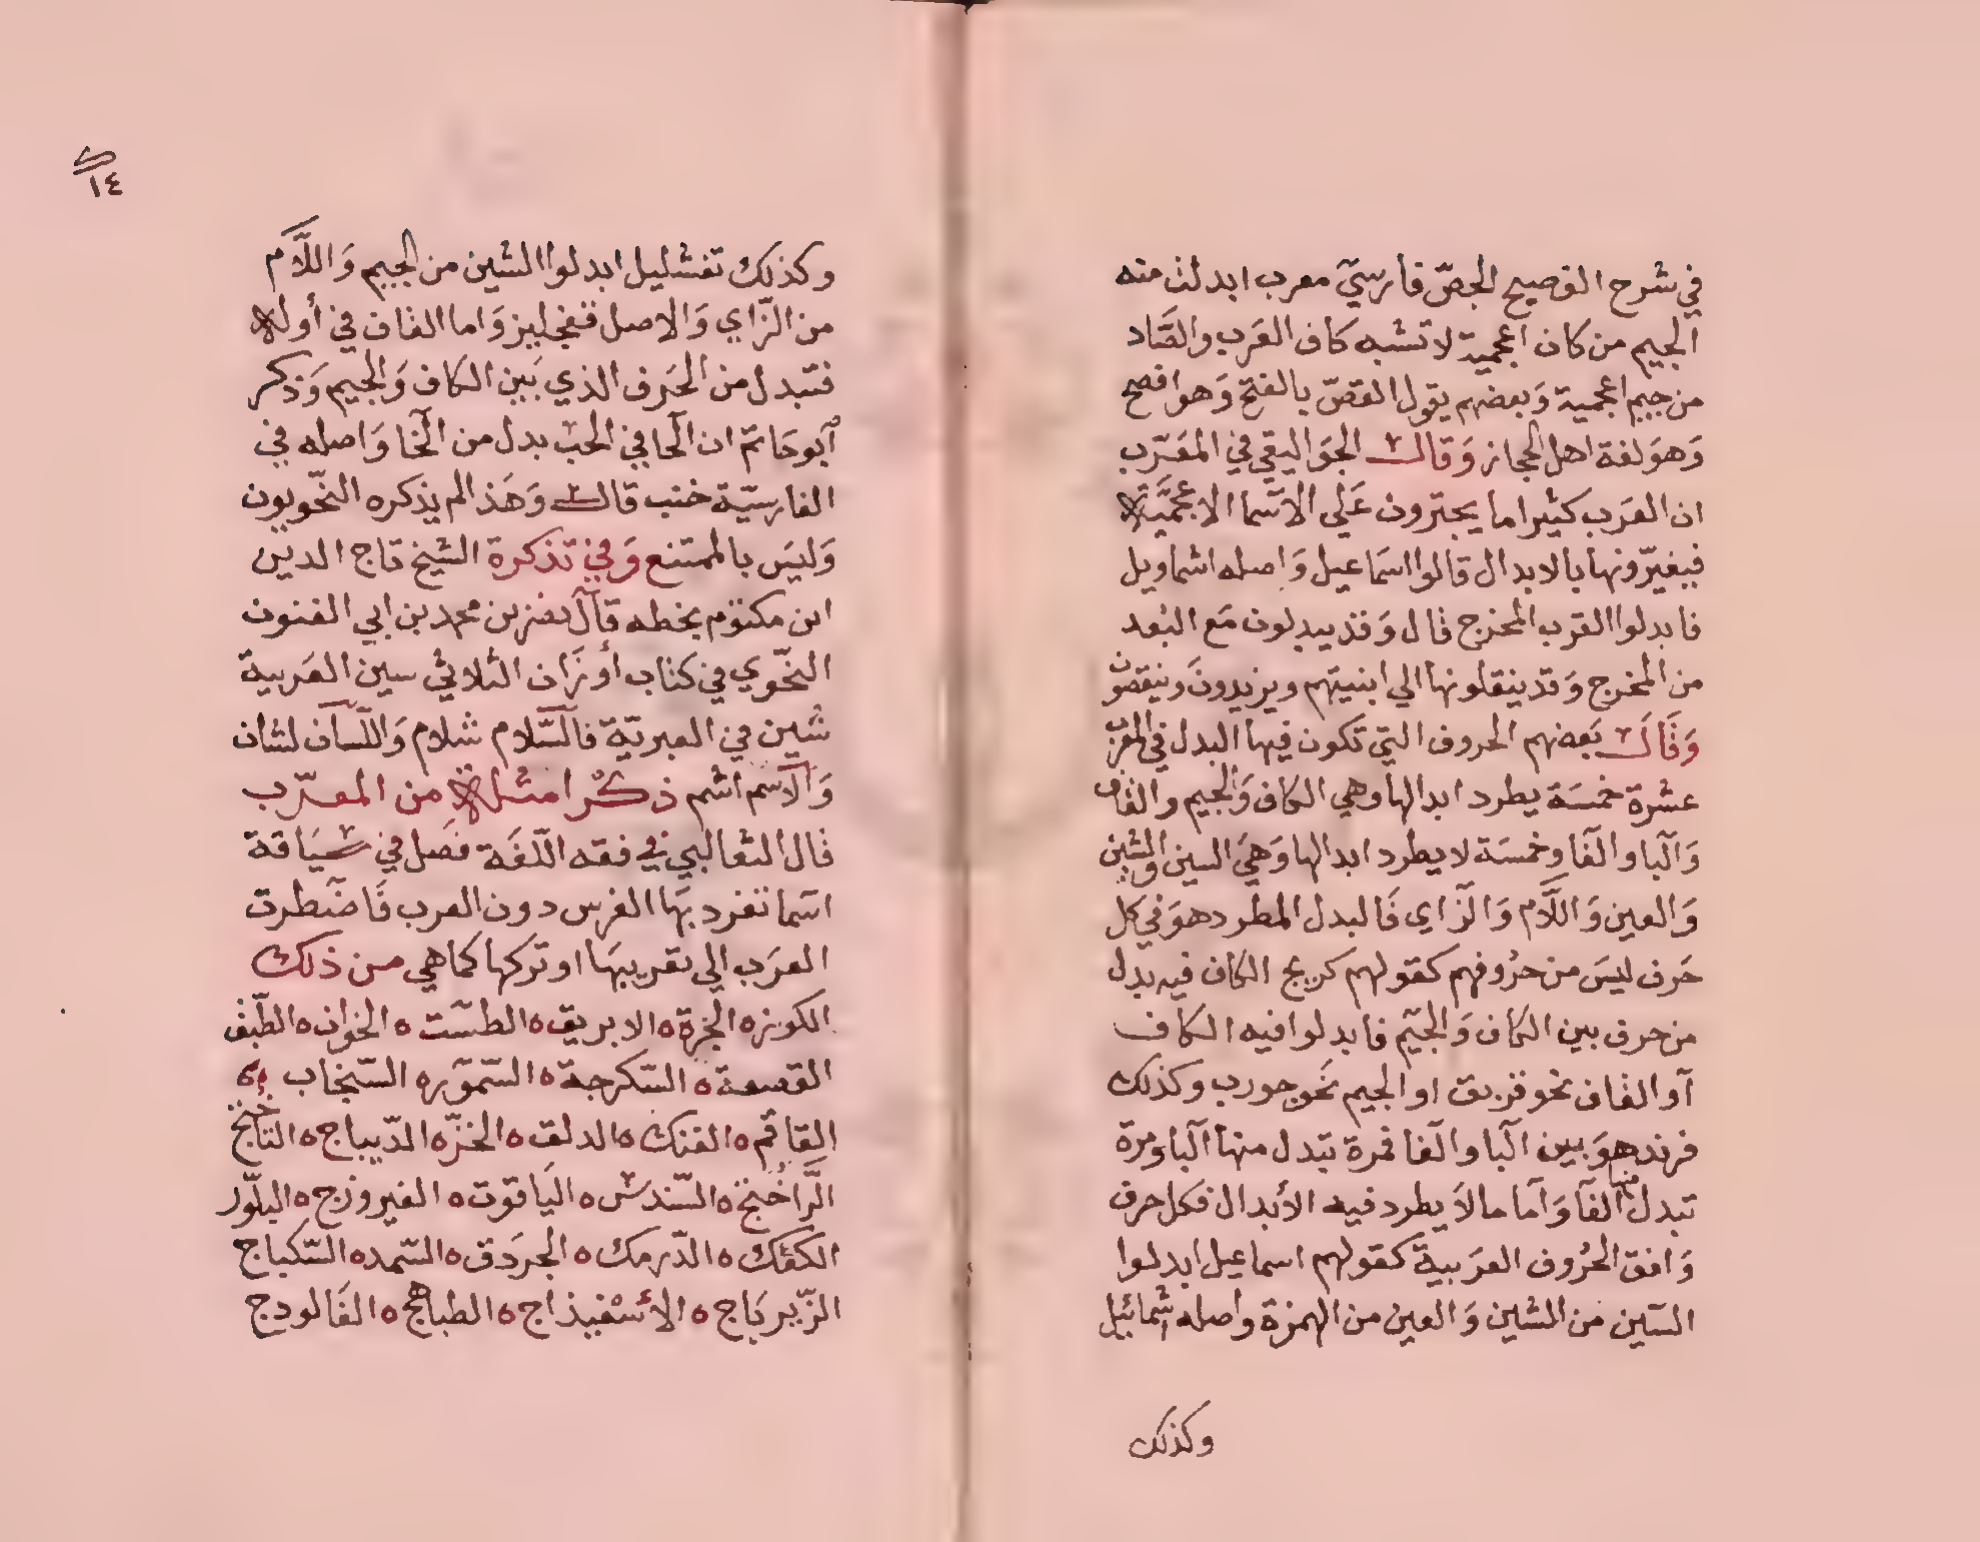 في شرح الفصيح الجصّ فارسيّ معرب ابدلت منه
الجيم من كاف اعجمية لا تشبه كاف العَرب والصَّاد
من جيم اعجمية وَبعضهم يقول القصّ بالفتح وَهو افصح
وَهوَ لغة اهل الحجاز وَقال الجوَاليقي في المعَرّب
ان العَرب كثيرا ما يجترون عَلى الاسما الاعجميَّة
فيغيّرونها بالابدال قالوا اسمَاعيل وَاصله اشماويل
فابدلوا لقرب المخرج قال وَقد يبدلون مَع البُعد
من المخرج وَقد ينقلونها الي ابنيتهم ويزيدونَ وينقصون
وَقَالَ بَعضهم الحروف التي تكون فيها البدل في المعرب
عشرة خمسَة يطرد ابدالها وهي الكاف وَالجيم والقاف
وَالبا والفا وخمسَة لا يطرد ابدالها وَهيَ السين والشين
وَالعين وَاللَّام وَالزاي فَالبدل المطرد هوَ في كل
حَرف ليسَ من حرُوفهم كقولهم كربج الكاف فيه بدل
من حرف بين الكاف وَالجيم فابدلوا فيه الكاف
أو القاف نحو قربق او الجيم نحَو جورب وكذلك
فرند هوَ بين البا والفا فمرة تبدل منها البا ومرة
تبدل منها الفا وَاما ما لاَ يطرد فيه الأبدال فكل حرف
وَافق الحُروف العَربيةَ كقولهم اسماعيل ابدلوا
السّين من الشين وَالعين من الهمزة وأصله اشمائيل
وكذلك
١٤
وكذلك تفشليل ابدلوا الشين من الجيم وَاللَّام
من الزّاي وَالاصل قفجليز وَاما القاف في أوله
فتبدل من الحَرف الذي بَين الكاف وَالجيم وَذكر
أبو حَاتم ان الحا في الحب بدل من الخا وَاصله في
الفارسيّة خنب قال وَهَذا لم يذكره النّحويون
وَليسَ بالممتنع وَفي تذكرة الشيخ تاج الدين
ابن مكتوم بخطه قال نصر بن محمد بن ابي الفنون
النحّوي في كتاب أوزَان الثلاثي سين العَربية
شين في العبريّة فالسَّلام شلام وَاللسان لشان
وَالاسم اشم ذكْر امثلة من المعرّب
قال الثعالبي في فقه اللّغَة فصَل في سيَاقة
اسَما تفرد بهَا الفرس دون العرب فَاضّطرت
العرَب الي تعريبهَا او تركها كما هي من ذلك
الكوز ه الجرة ه الابريق ه الطسّت ه الخوان ه الطّبق
القصعة ه السّكرجة ه السّموّر ه السّنجاب ه
القاقم ه الفنك ه الدلق ه الخزّ ه الدّيباج ه التاخج
الرَّاخُتج ه السّندس ه اليَاقوت ه الفيروزج ه البلّور
الكعك ه الدّرمك ه الجردَق ه السّمد ه السّكباج
الزّيربَاج ه الأسْفيذاج ه الطباهج ه الفَالودج